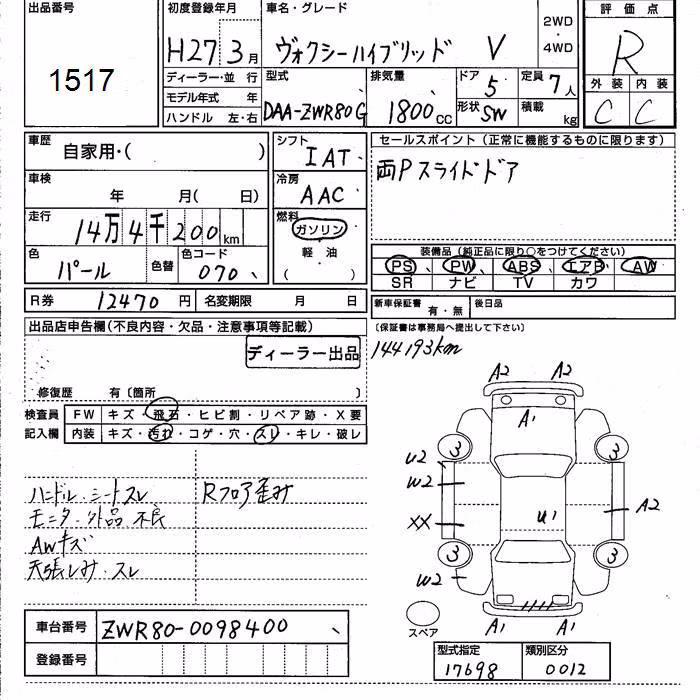 出品番号
1517
初度登録年月
H27 3月
車名・グレード
ヴォクシーハイブリッド V
2WD
・
4WD
評価点
R
外装 内装
C C
ディーラー・並行
モデル年式 年
ハンドル 左・右
型式
DAA-ZWR80G
排気量
1800cc
ドア
5
形状
SW
定員
7人
積載
kg
車歴
自家用・( )
シフト
IAT
車検
年 月( 日)
冷房
AAC
走行
14万4千200km
燃料
ガソリン
軽油
( )
色
パール
色替
色コード
070
R券 12470円
名変期限 月 日
セールスポイント(正常に機能するものに限ります)
両Pスライドドア
装備品(純正品に限り○をつけてください)
PS PW ABS エアB AW
SR ナビ TV カワ
新車保証書 有・無
後日品
〔保証書は事務局へ提出して下さい〕
144193km
出品店申告欄(不良内容・欠品・注意事項等記載)
ディーラー出品
修復歴 有〔箇所 〕
検査員
記入欄
FW キズ・飛石・ヒビ割・リペア跡・X要
内装 キズ・汚れ・コゲ・穴・スレ・キレ・破レ
ハンドル・シートスレ
モニタ・外品 不良
AWキズ
天張しみ・スレ
Rフロア歪み
A2 A2
A1
3 3
U2
W2
XX
U1
A2
3 3
W2
A1 A1
スペア
車台番号 ZWR80-0098400
登録番号
型式指定
17698
類別区分
0012